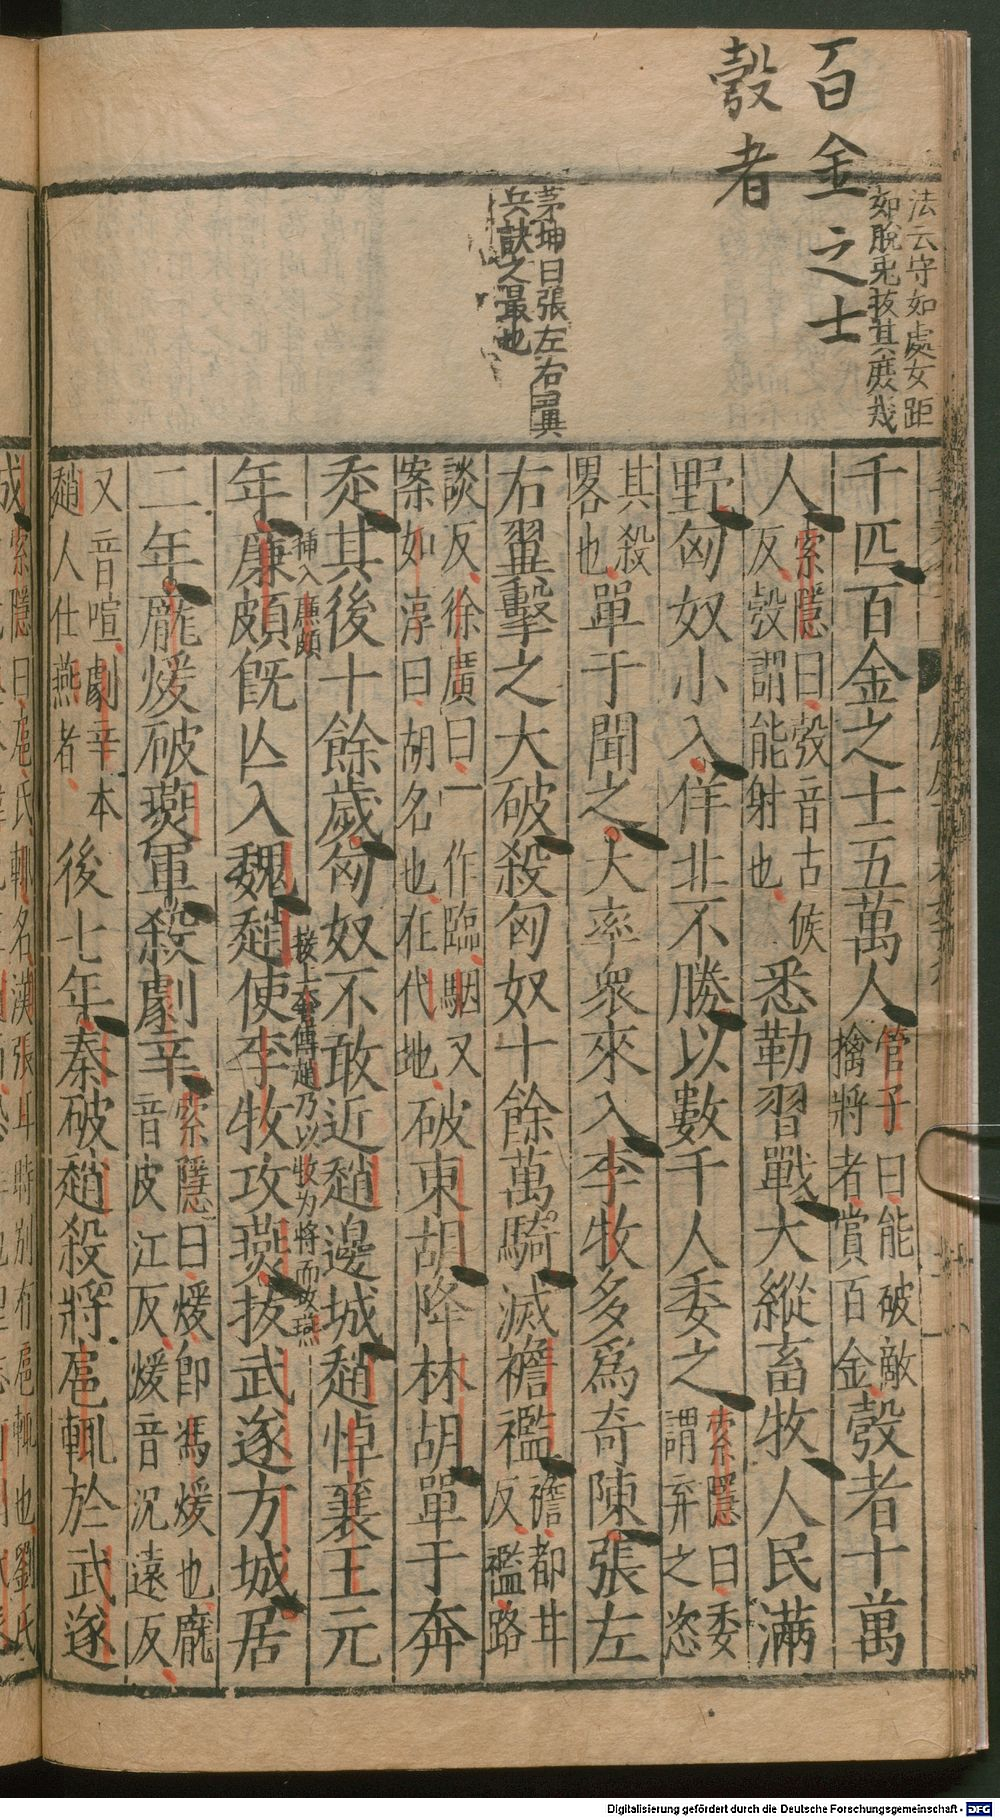 百金之士
彀者
法云守如處女距
如脫兎拔其庶㡬
茅坤曰張左右翼
兵訣之最也
千匹百金之士五萬人管子曰能破敵擒將者賞百金彀者十萬
人索隱曰彀音古候反彀謂能射也悉勒習戰大縱畜牧人民滿
野匈奴小入佯北不勝以數千人委之索隱曰委謂弃之恣
其殺畧也單于聞之大率衆來入李牧多爲奇陳張左
右翼擊之大破殺匈奴十餘萬騎滅襜襤襜都甘反襤路
談反徐廣曰一作臨駰又案如淳曰胡名也在代地破東胡降林胡單于奔
走其後十餘歲匈奴不敢近趙邊城趙悼襄王元
插入廉頗
按上本傳趙乃以牧为將而攻燕
年廉頗旣亾入魏趙使李牧攻燕拔武遂方城居
二年龐煖破燕軍殺劇辛索隱曰煖卽馮煖也龐音皮江反煖音况遠反
又音喧劇辛本趙人仕燕者後七年秦破趙殺將扈輒於武遂
成索隱曰扈氏輒名漢張耳時別有扈輒也劉氏
Digitalisierung gefördert durch die Deutsche Forschungsgemeinschaft - DFG